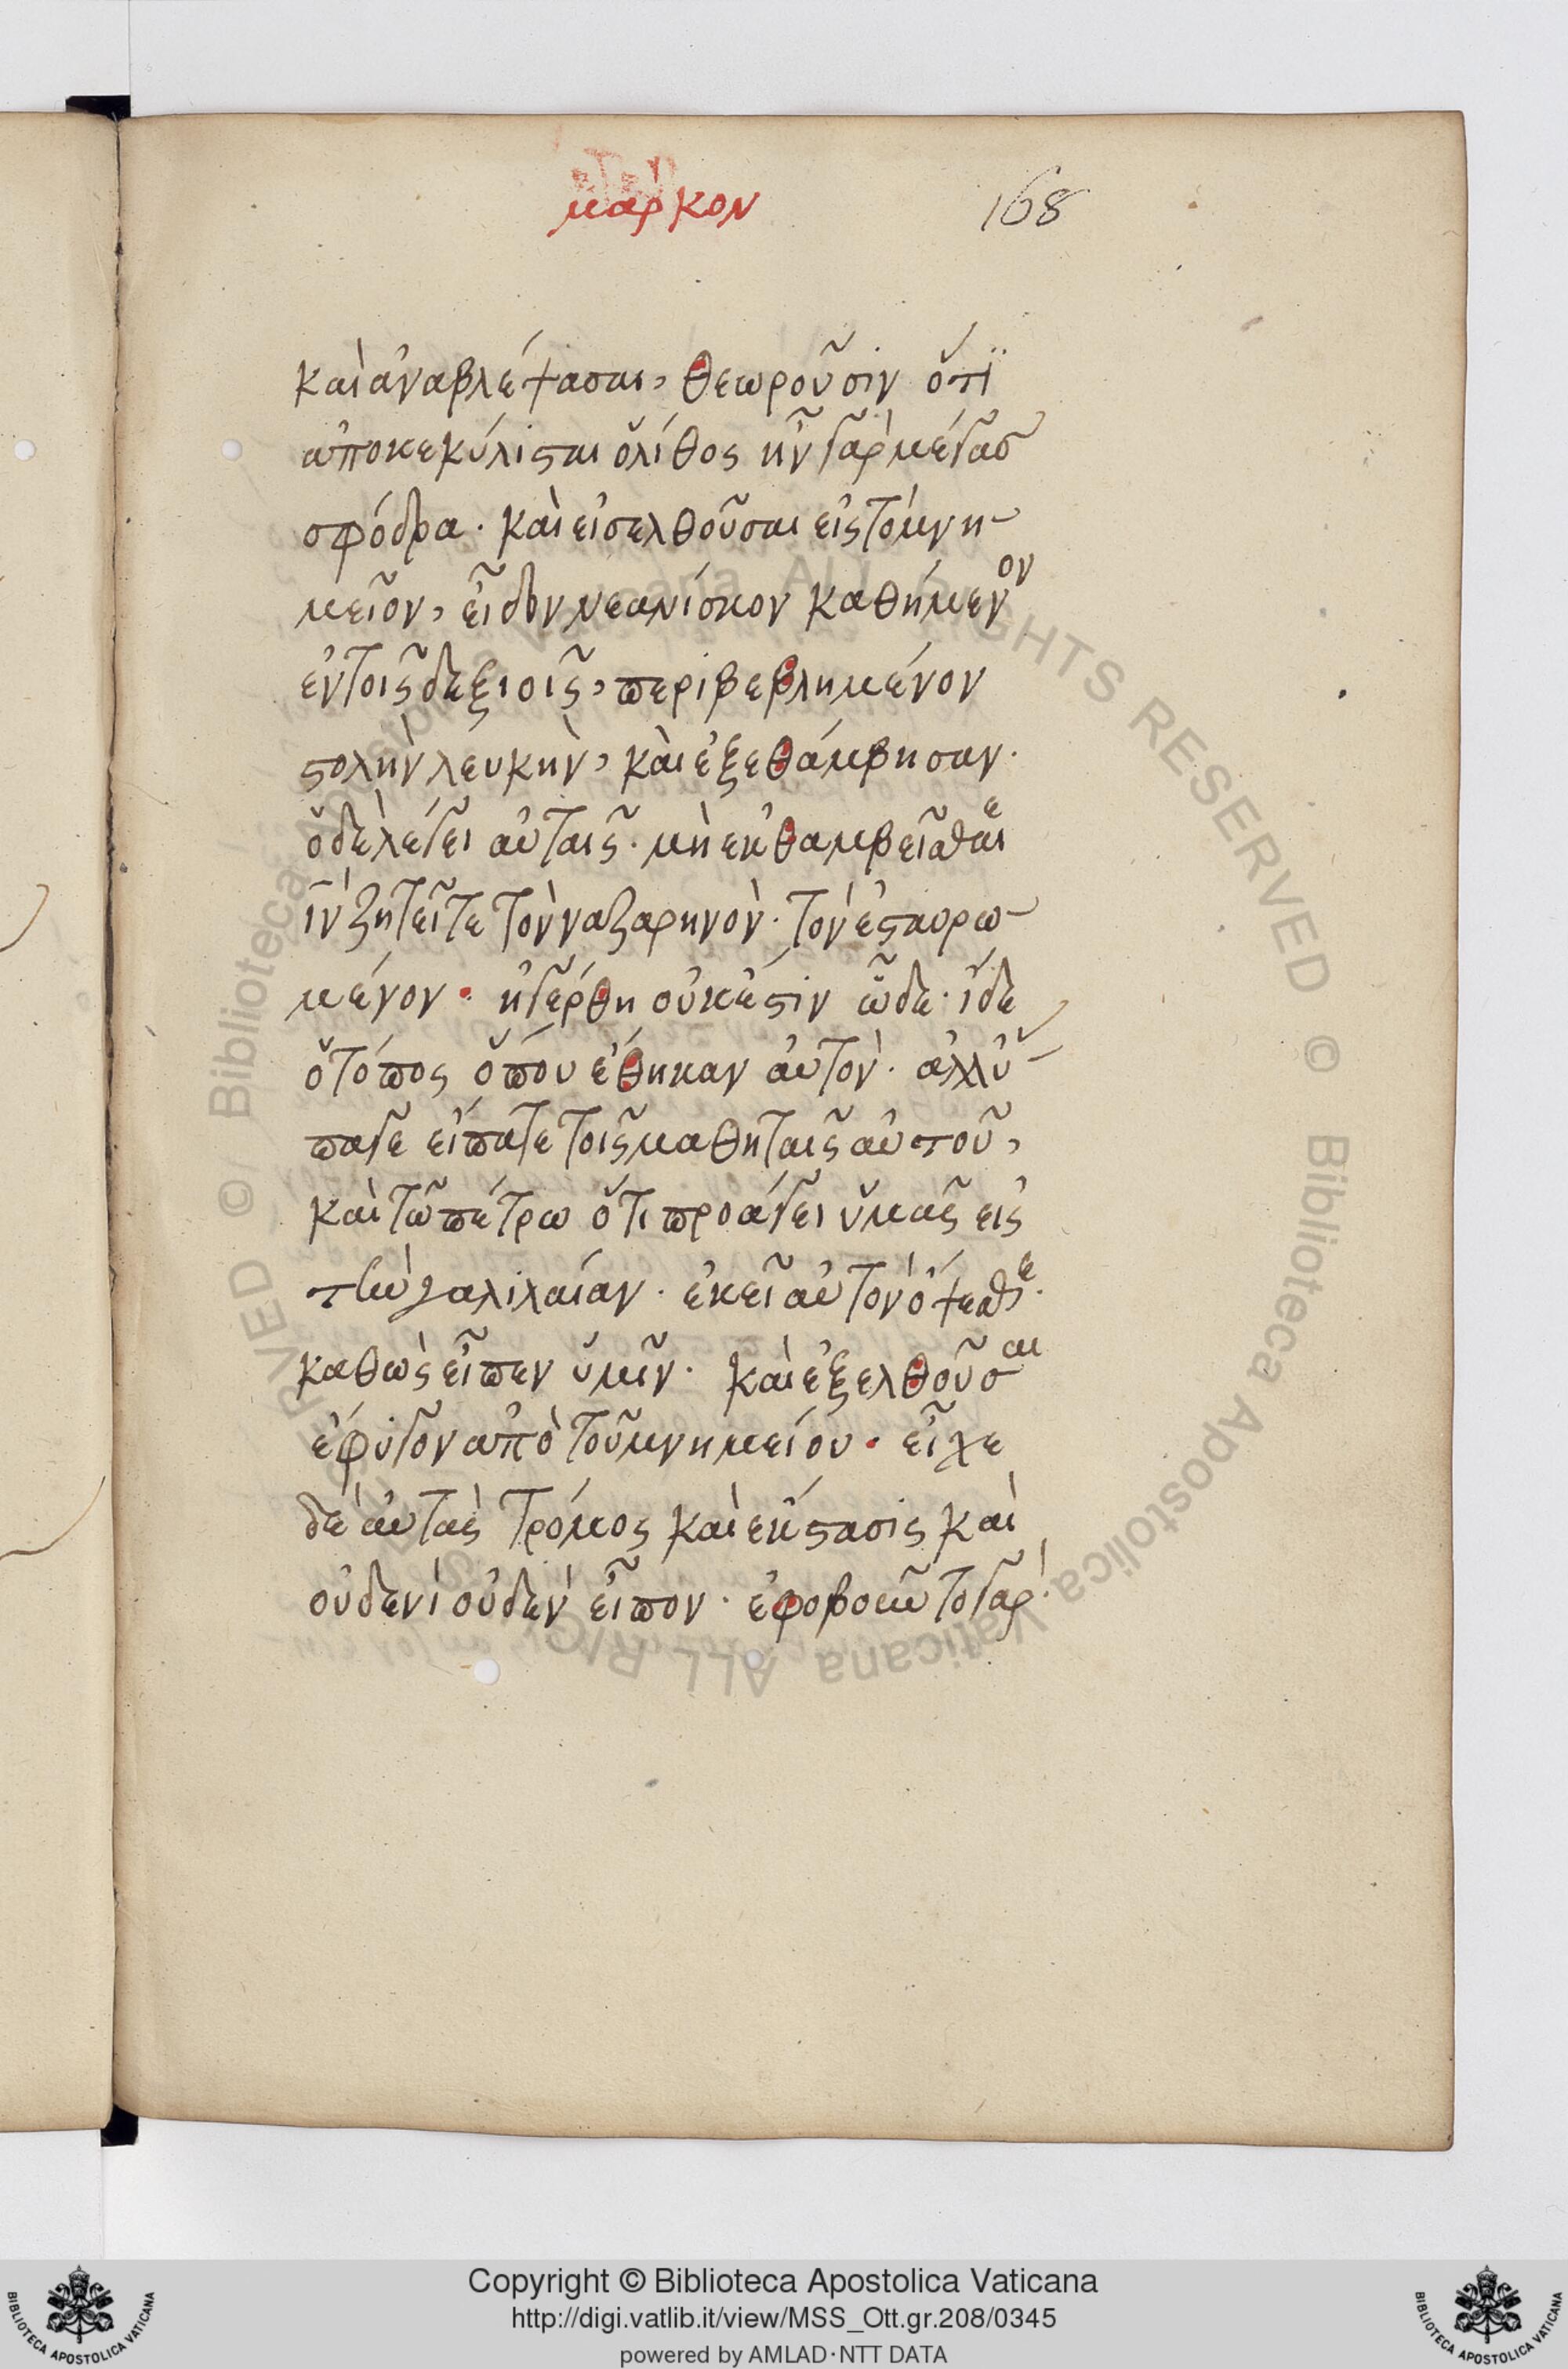 μάρκον
168
καὶ ἀναβλέψασαι, θεωροῦσιν ὅτϊ
ἀποκεκύλισται ὁ λίθος ἦν γὰρ μέγασ
σφόδρα. καὶ εἰσελθοῦσαι εἰς τὸ μνη-
μεῖον, εἶδον νεανίσκον καθήμενον
ἐν τοῖς δεξιοῖς, περιβεβλημένον
στολὴν λευκὴν, καὶ ἐξεθάμβησαν.
ὁ δὲ λέγει αὐταῖς. μὴ ἐκθαμβεῖσθαι
ε
ιν ζητεῖτε τὸν ναζαρηνὸν. τὸν ἐσταυρω-
μένον. ἠγέρθη οὐκ ἔστιν ὧδε. ἴδε
ὁ τόπος ὅπου ἔθηκαν αὐτὸν. ἀλλ' ὑ-
πάγε εἴπατε τοῖς μαθηταῖς αὐτοῦ,
καὶ τῶ πέτρω ὅτι προάγει ὑμᾶς εἰς
τὴν γαλιλαίαν. ἐκεῖ αὐτὸν ὄψεσθε.
καθὼς εἶπεν ὑμῖν. καὶ ἐξελθοῦσαι
ἔφυγον ἀπὸ τοῦ μνημείου. εἶχε
δὲ αὐτὰς τρόμος καὶ ἔκστασις καὶ
οὐδενὶ οὐδὲν εἶπον. ἐφοβοῦντο γάρ.
© Biblioteca Apostolica Vaticana ALL RIGHTS RESERVED © Biblioteca Apostolica Vaticana ALL RIGHTS RESERVED
Copyright © Biblioteca Apostolica Vaticana
http://digi.vatlib.it/view/MSS_Ott.gr.208/0345
powered by AMLAD·NTT DATA
BIBLIOTECA APOSTOLICA VATICANA
BIBLIOTECA APOSTOLICA VATICANA